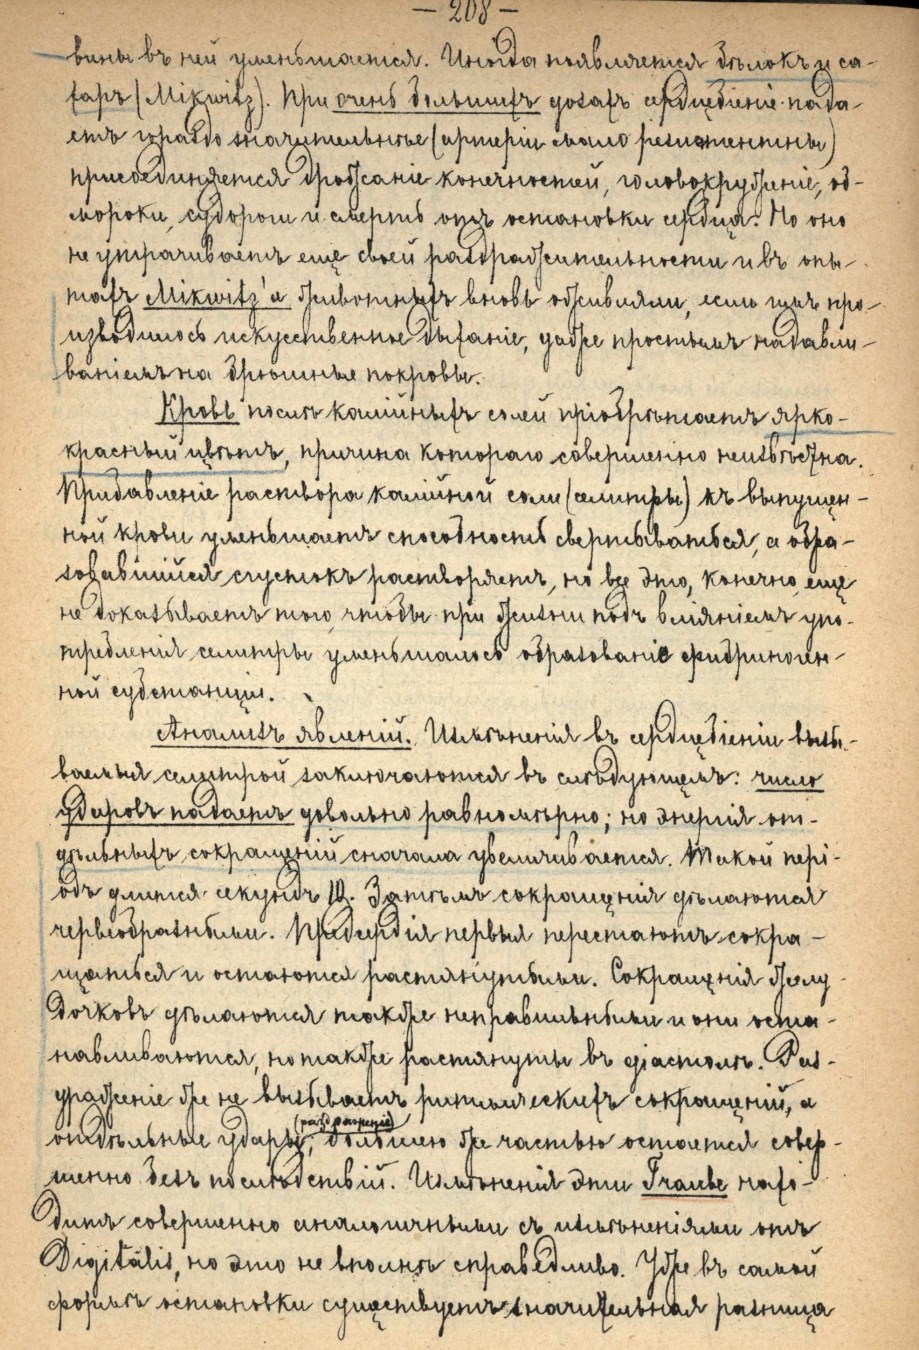 — 208 —
вины въ ней уменьшается. Иногда появляется бѣлокъ и са-
харъ (Mikwitz). При очень большихъ дозахъ сердцебіеніе пада-
етъ гораздо значительнѣе (артеріи мало резистентны)
присоединяется дрожаніе конечностей, головокруженіе, об-
мороки, судороги и смерть отъ остановки сердца. Но оно
не утрачиваетъ еще своей раздражительности и въ опы-
тахъ Mikwitz'а животныхъ вновь оживляли, если имъ про-
изводилось искусственное дыханіе, даже простымъ надавли-
ваніемъ на брюшные покровы.
Кровь послѣ калійныхъ солей пріобрѣтаетъ ярко-
красный цвѣтъ, причина котораго совершенно неизвѣстна.
Прибавленіе раствора калійной соли (селитры) къ выпущен-
ной крови уменьшаетъ способность свертываться, а обра-
зовавшійся сгустокъ растворяетъ, но все это, конечно, еще
не доказываетъ того, чтобы при жизни подъ вліяніемъ упо-
требленія селитры уменьшалось образованіе фибриноген-
ной субстанціи.
Анализъ явленій. Измѣненія въ сердцебіеніи вызы-
ваемыя селитрой заключаются въ слѣдующемъ: число
ударовъ падаетъ довольно равномѣрно; но энергія от-
дѣльныхъ сокращеній сначала увеличивается. Такой пері-
одъ длится секундъ 10. Затѣмъ сокращенія дѣлаются
червеобразными. Предсердія первыя перестаютъ сокра-
щаться и остаются растянутыми. Сокращенія желу-
дочковъ дѣлаются также неправильными и они оста-
навливаются, но также растянуты въ діастолѣ. Раз-
драженіе же не вызываетъ ритмическихъ сокращеній, а
(раздраженіе)
отдѣльные удары, большею же частью остается совер-
шенно безъ послѣдствій. Измѣненія эти Traube нахо-
дитъ совершенно аналогичными съ измѣненіями отъ
Digitalis, но это не вполнѣ справедливо. Уже въ самой
формѣ остановки существуетъ значительная разница